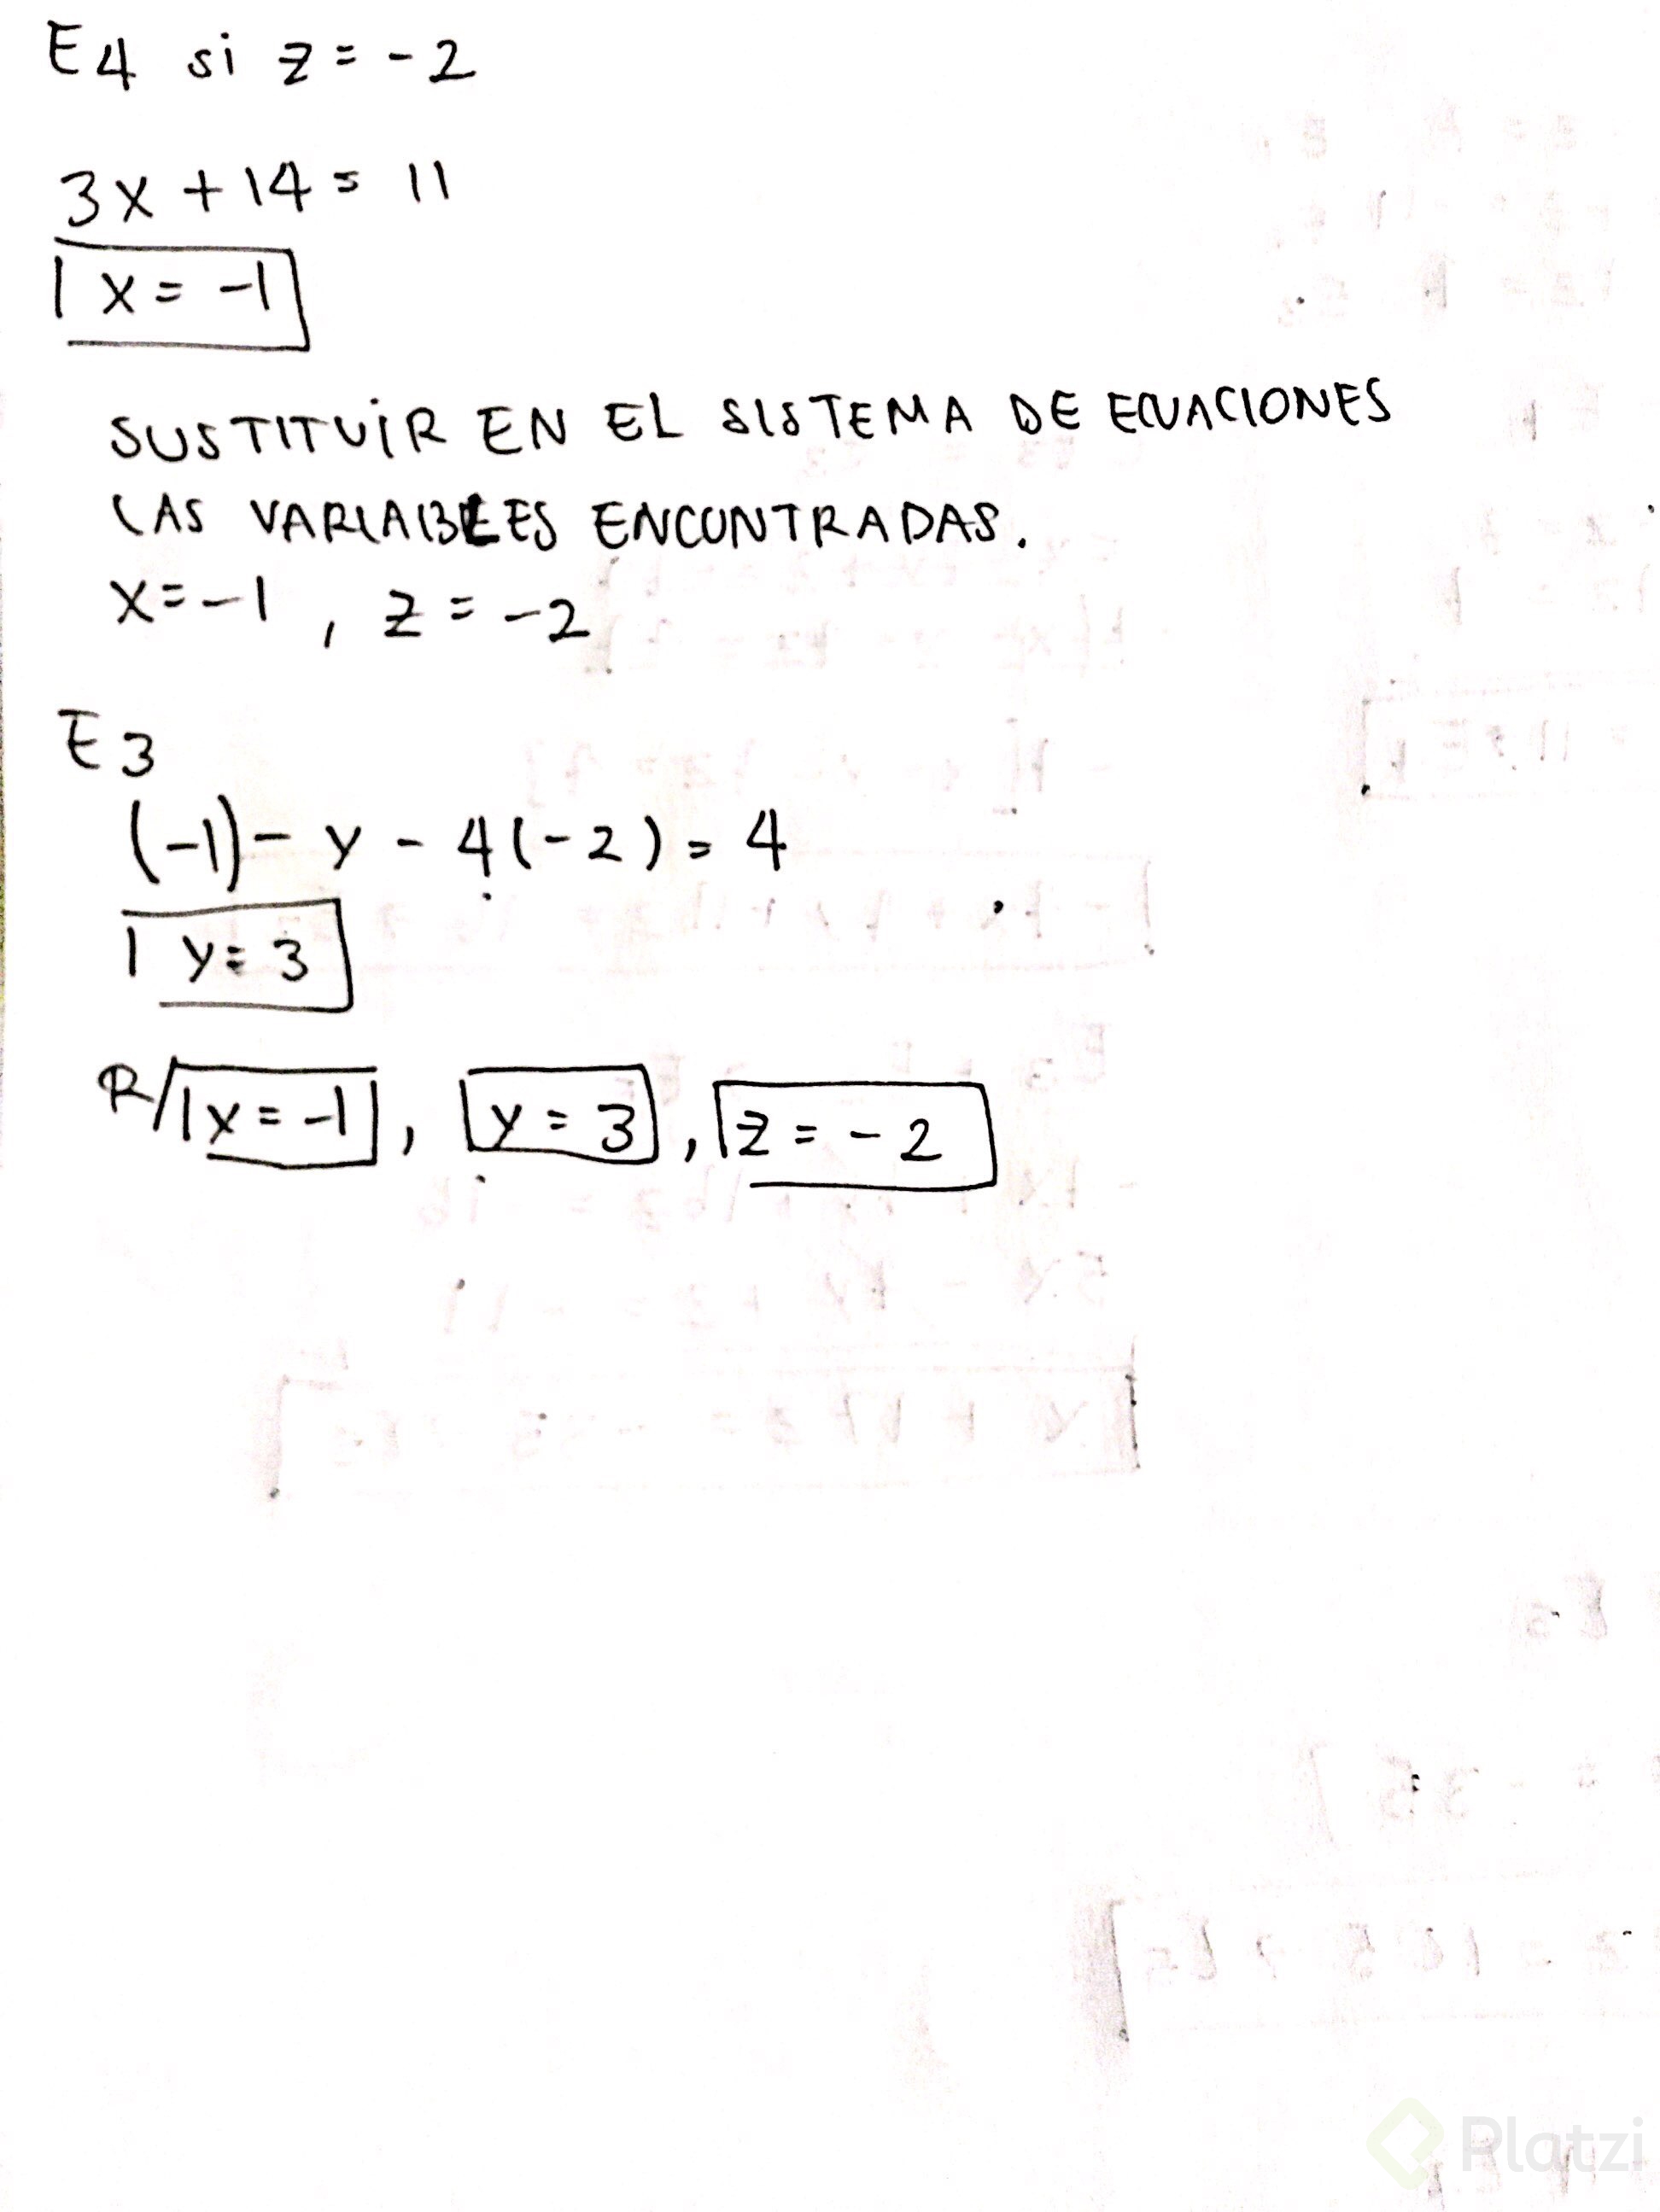 E4 si z = -2
3x + 14 = 11
x = -1
SUSTITUIR EN EL SISTEMA DE ECUACIONES
LAS VARIABLES ENCONTRADAS.
x = -1 , z = -2
E3
(-1) - y - 4(-2) = 4
y = 3
R/ x = -1 , y = 3 , z = -2
Platzi